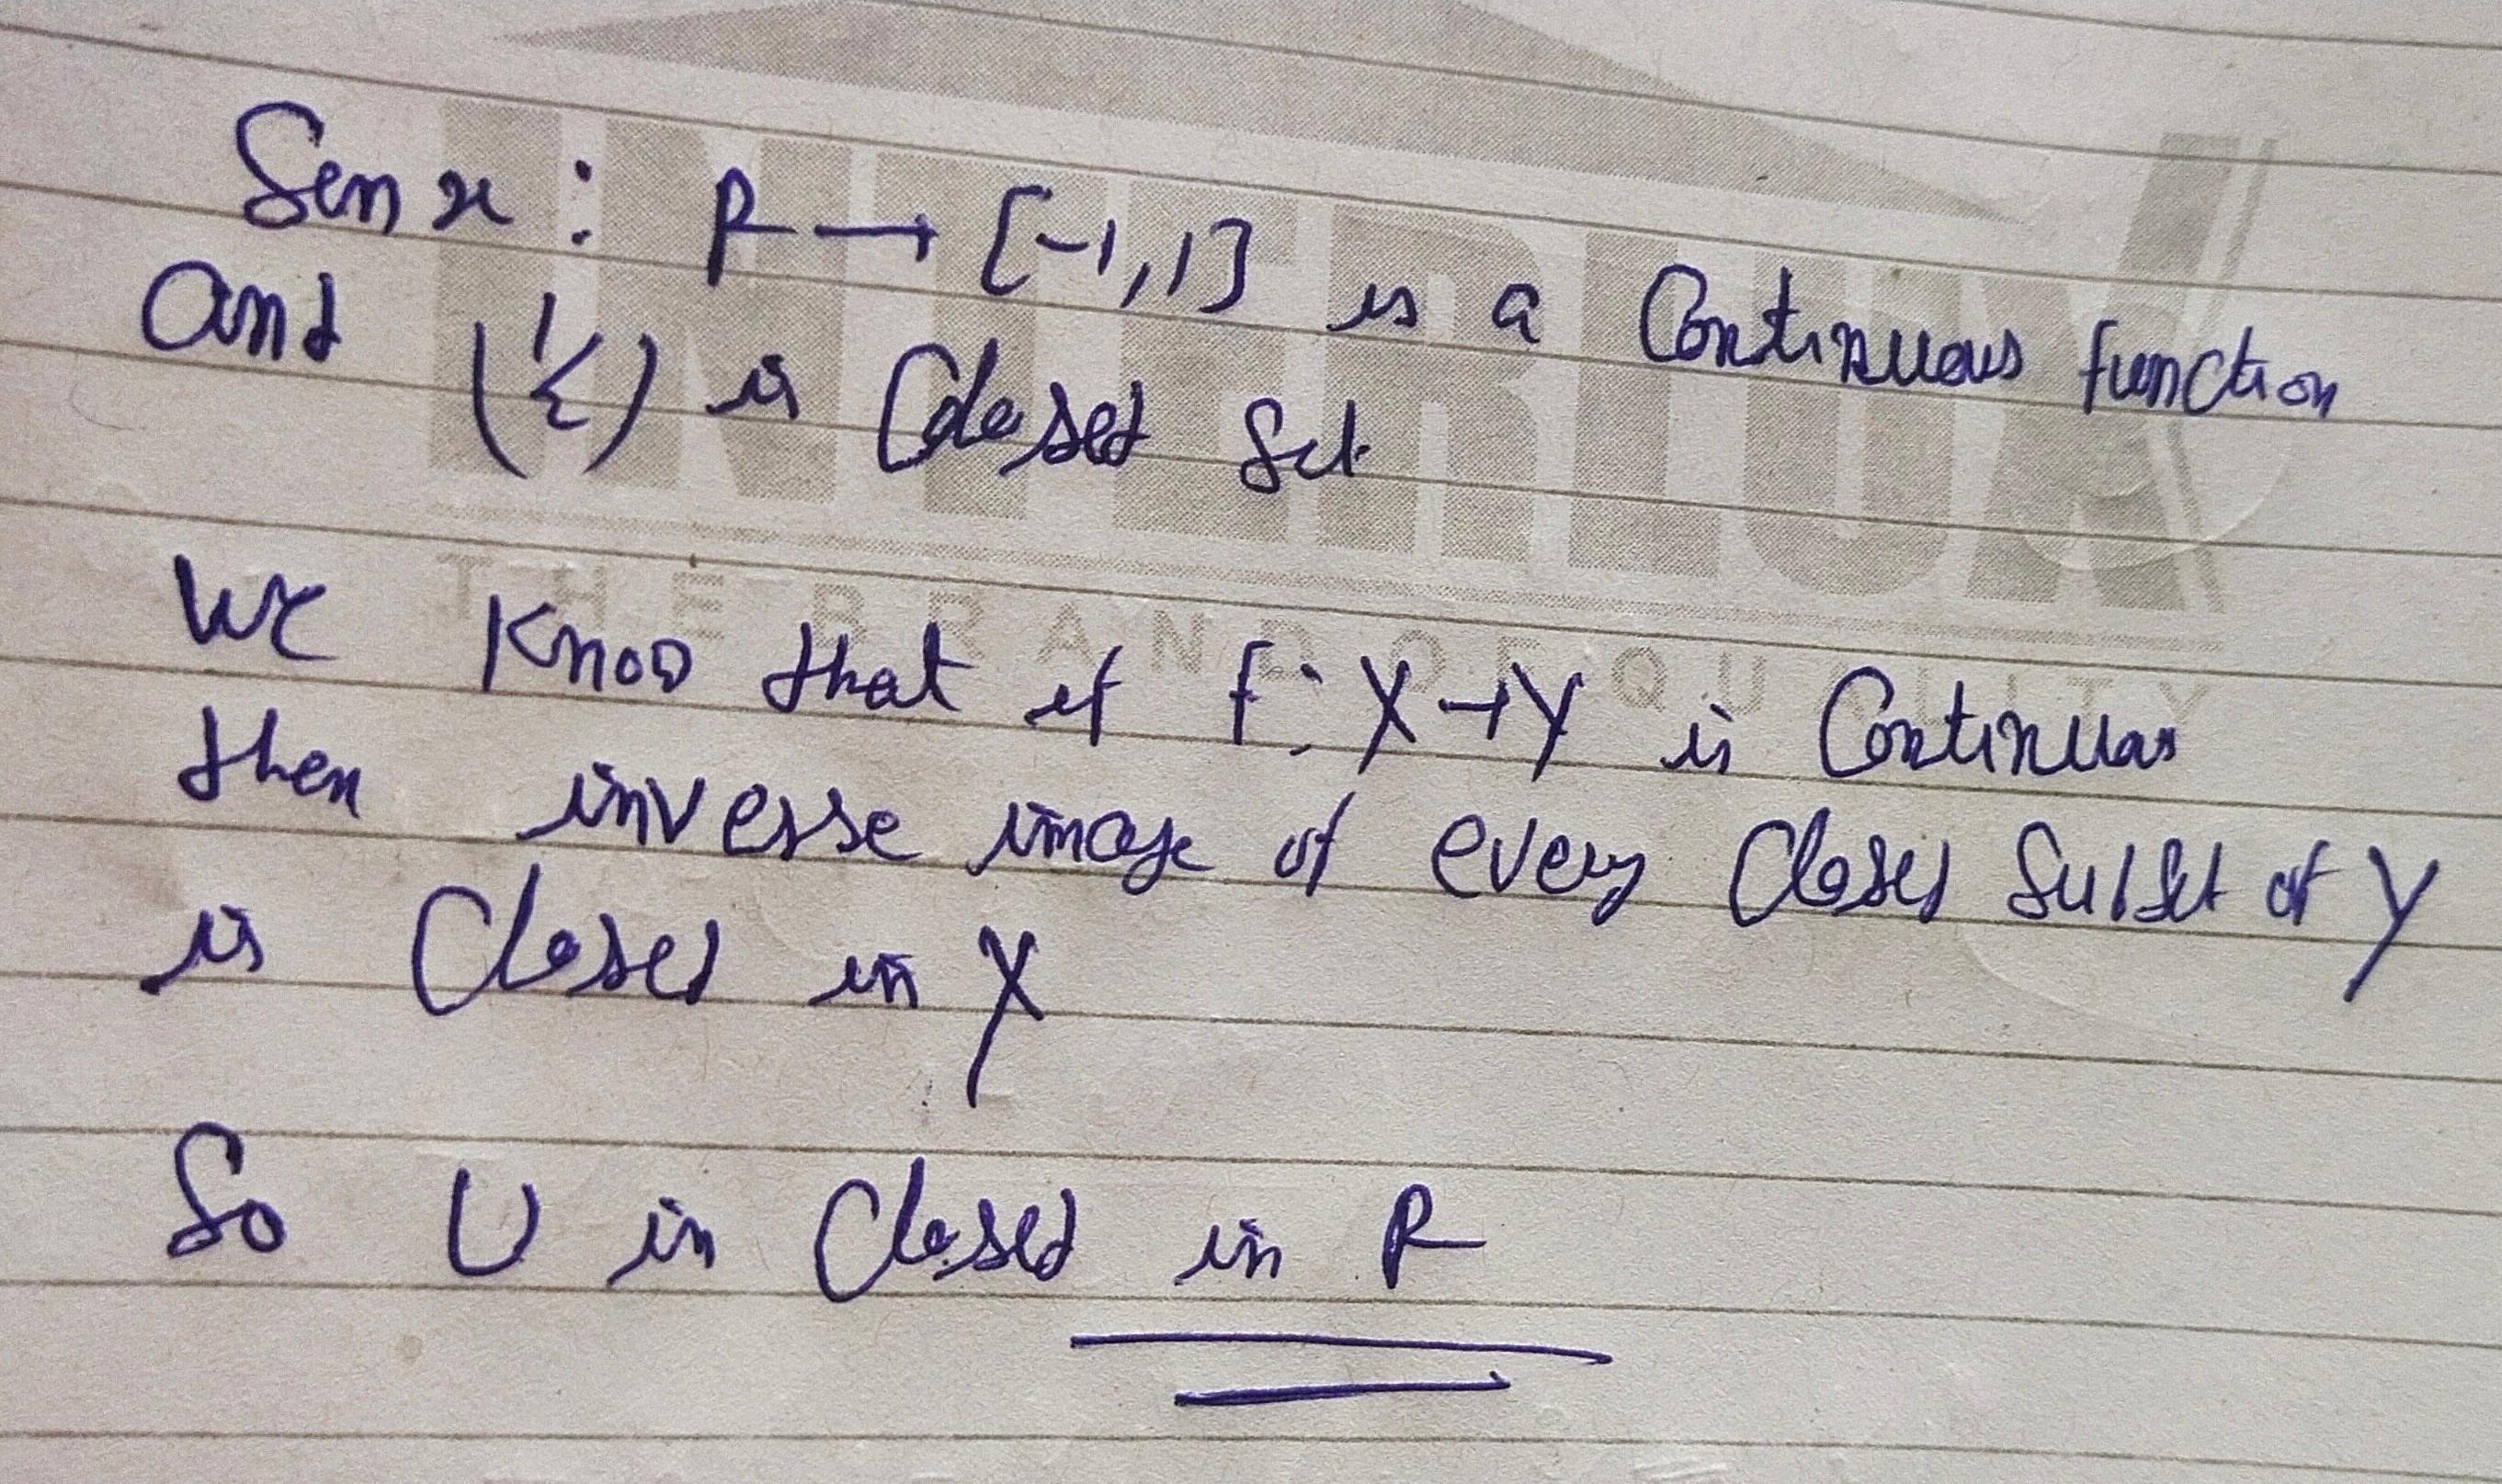 Sin x : R → [-1,1] is a Continuous function
and (1/2) is Closed Set
INTERIUX
THE BRAND OF QUALITY
We Know that if f: X→Y is Continuous
then inverse image of every Closed Subset of Y
is Closed in X
So U is Closed in R